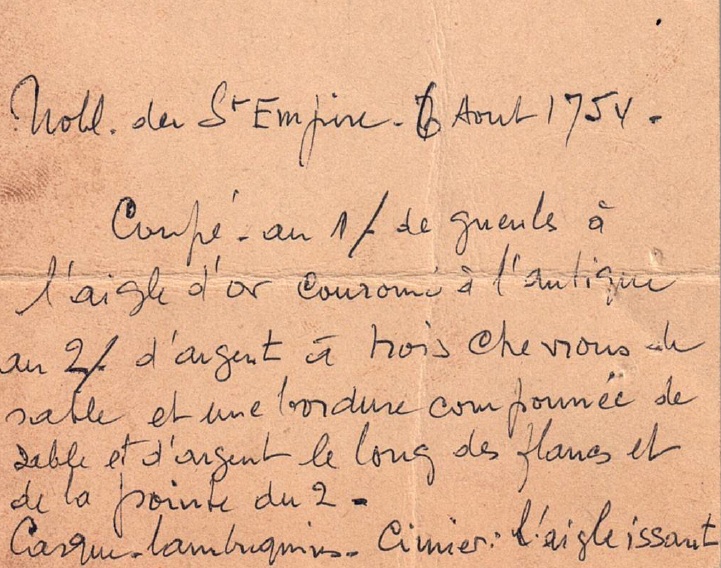 Nobl. du St Empire - 6 Aout 1754.
Coupé - au 1/ de gueuls à
l'aigle d'or couronné à l'antique
au 2/ d'argent à trois chevrons de
sable et une bordure componnée de
sable et d'argent le long des flancs et
de la pointe du 2 -
Casque - lambrequins - Cimier: l'aigle issant